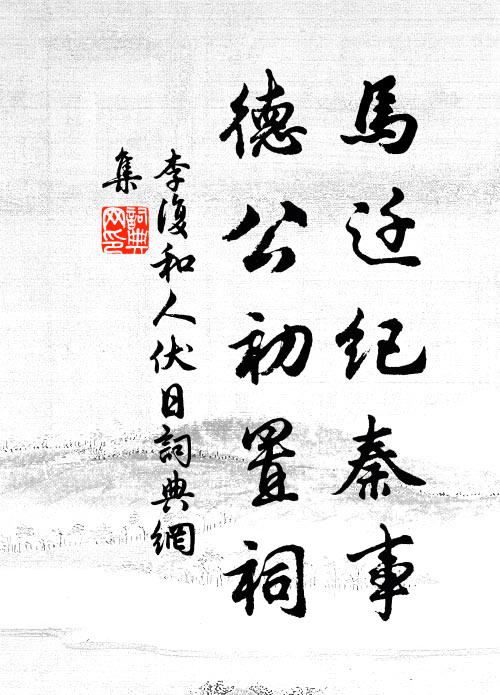 馬迁紀秦事
德公初置祠
李復和人伏日詞典網
集
詞典网印